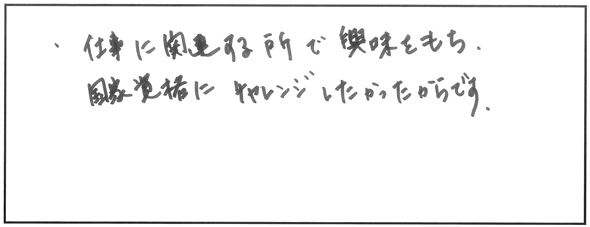 ・仕事に関連する所で興味をもち、
国家資格にチャレンジしたかったからです。